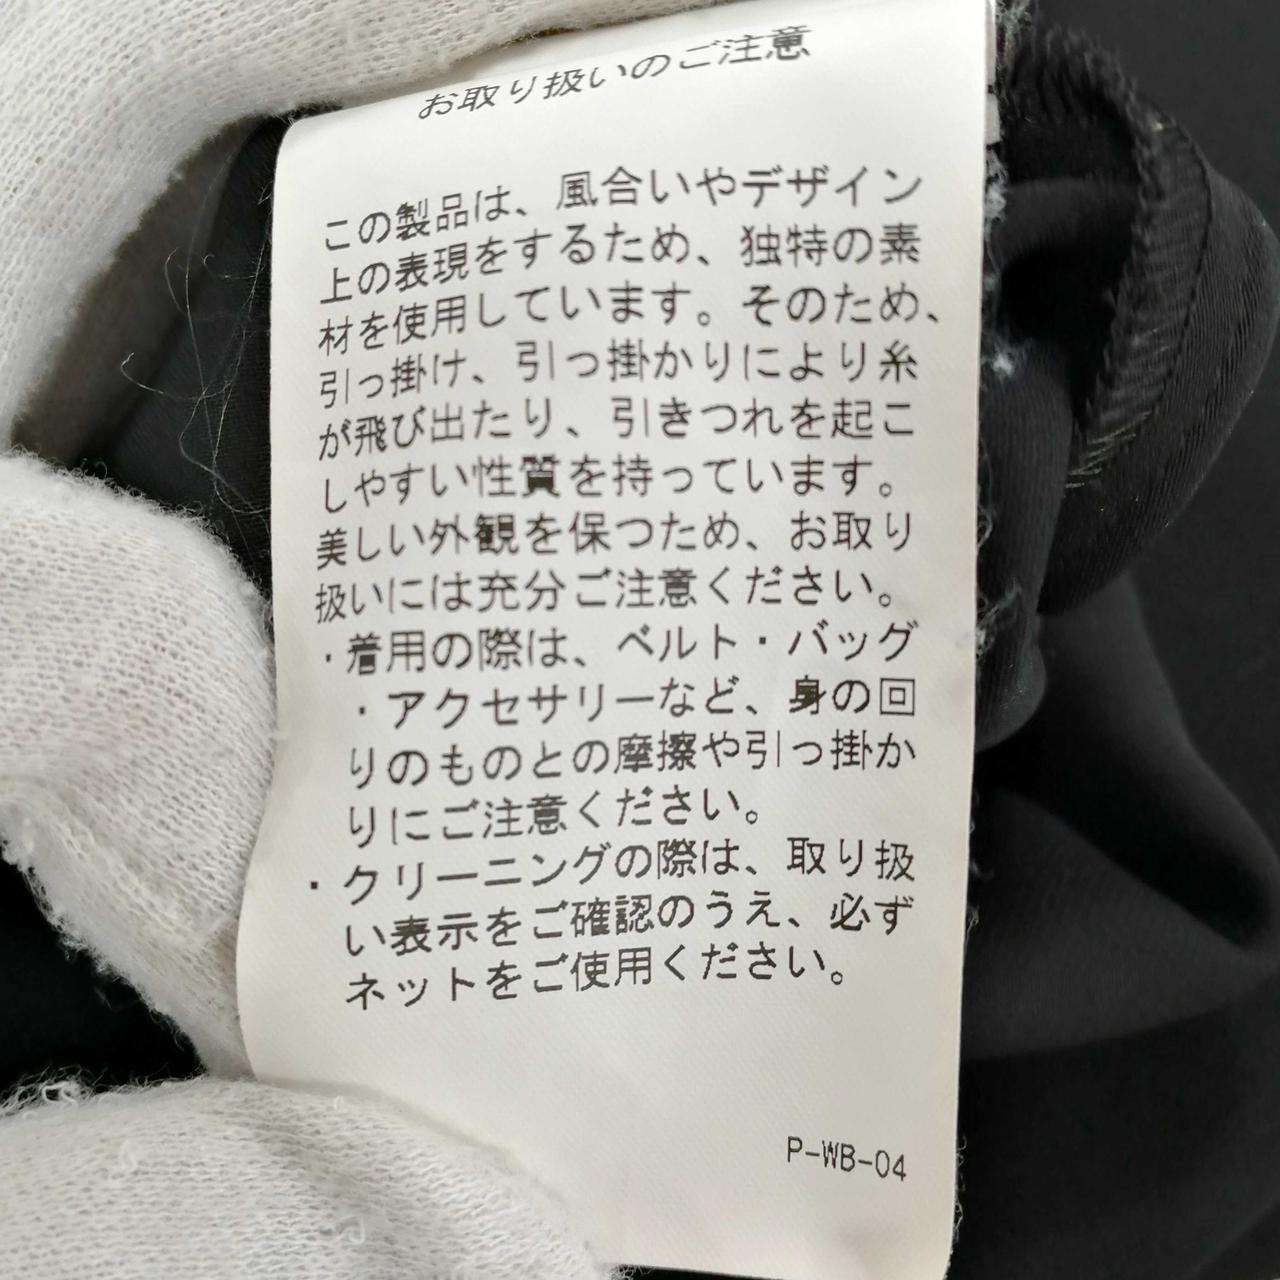 お取り扱いのご注意
この製品は、風合いやデザイン
上の表現をするため、独特の素
材を使用しています。そのため、
引っ掛け、引っ掛かりにより糸
が飛び出たり、引きつれを起こ
しやすい性質を持っています。
美しい外観を保つため、お取り
扱いには充分ご注意ください。
・着用の際は、ベルト・バッグ
・アクセサリーなど、身の回
りのものとの摩擦や引っ掛か
りにご注意ください。
・クリーニングの際は、取り扱
い表示をご確認のうえ、必ず
ネットをご使用ください。
P-WB-04